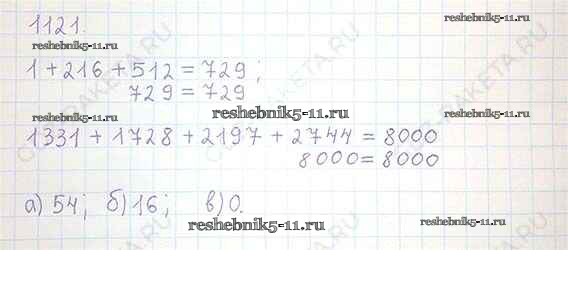 1121.
reshebnik5-11.ru
1 + 216 + 512 = 729 ;
729 = 729
reshebnik5-11.ru
reshebnik5-11.ru
1331 + 1728 + 2197 + 2744 = 8000
8000 = 8000
а) 54; б) 16; в) 0.
reshebnik5-11.ru
reshebnik5-11.ru